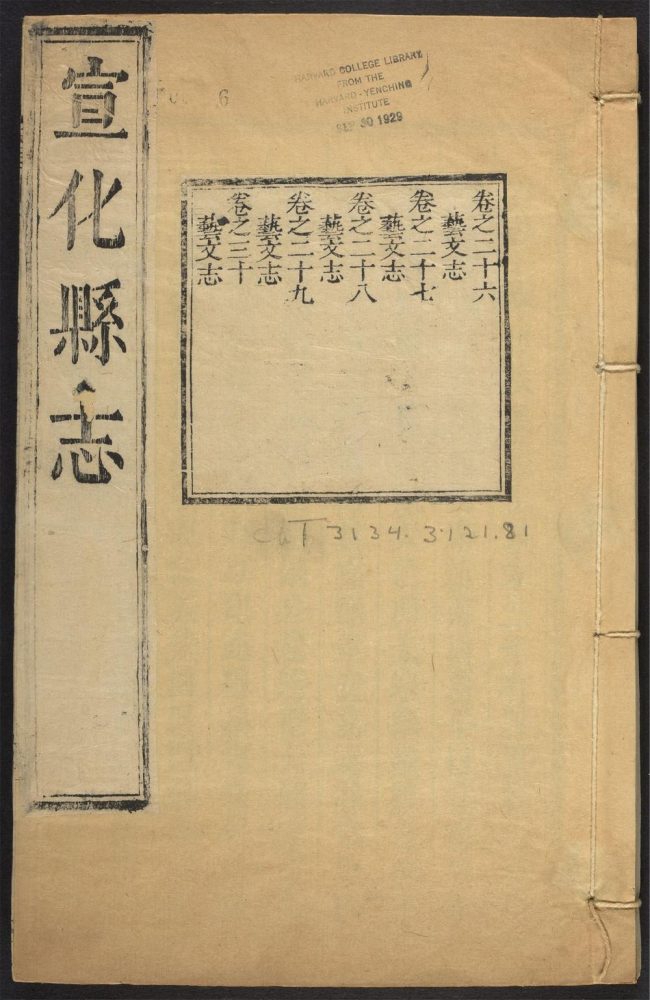 宣化縣志
HARVARD COLLEGE LIBRARY
FROM THE
HARVARD-YENCHING
INSTITUTE
SEP 30 1929
6
卷之二十六
藝文志
卷之二十七
藝文志
卷之二十八
藝文志
卷之二十九
藝文志
卷之三十
藝文志
T 3134. 3.121.81